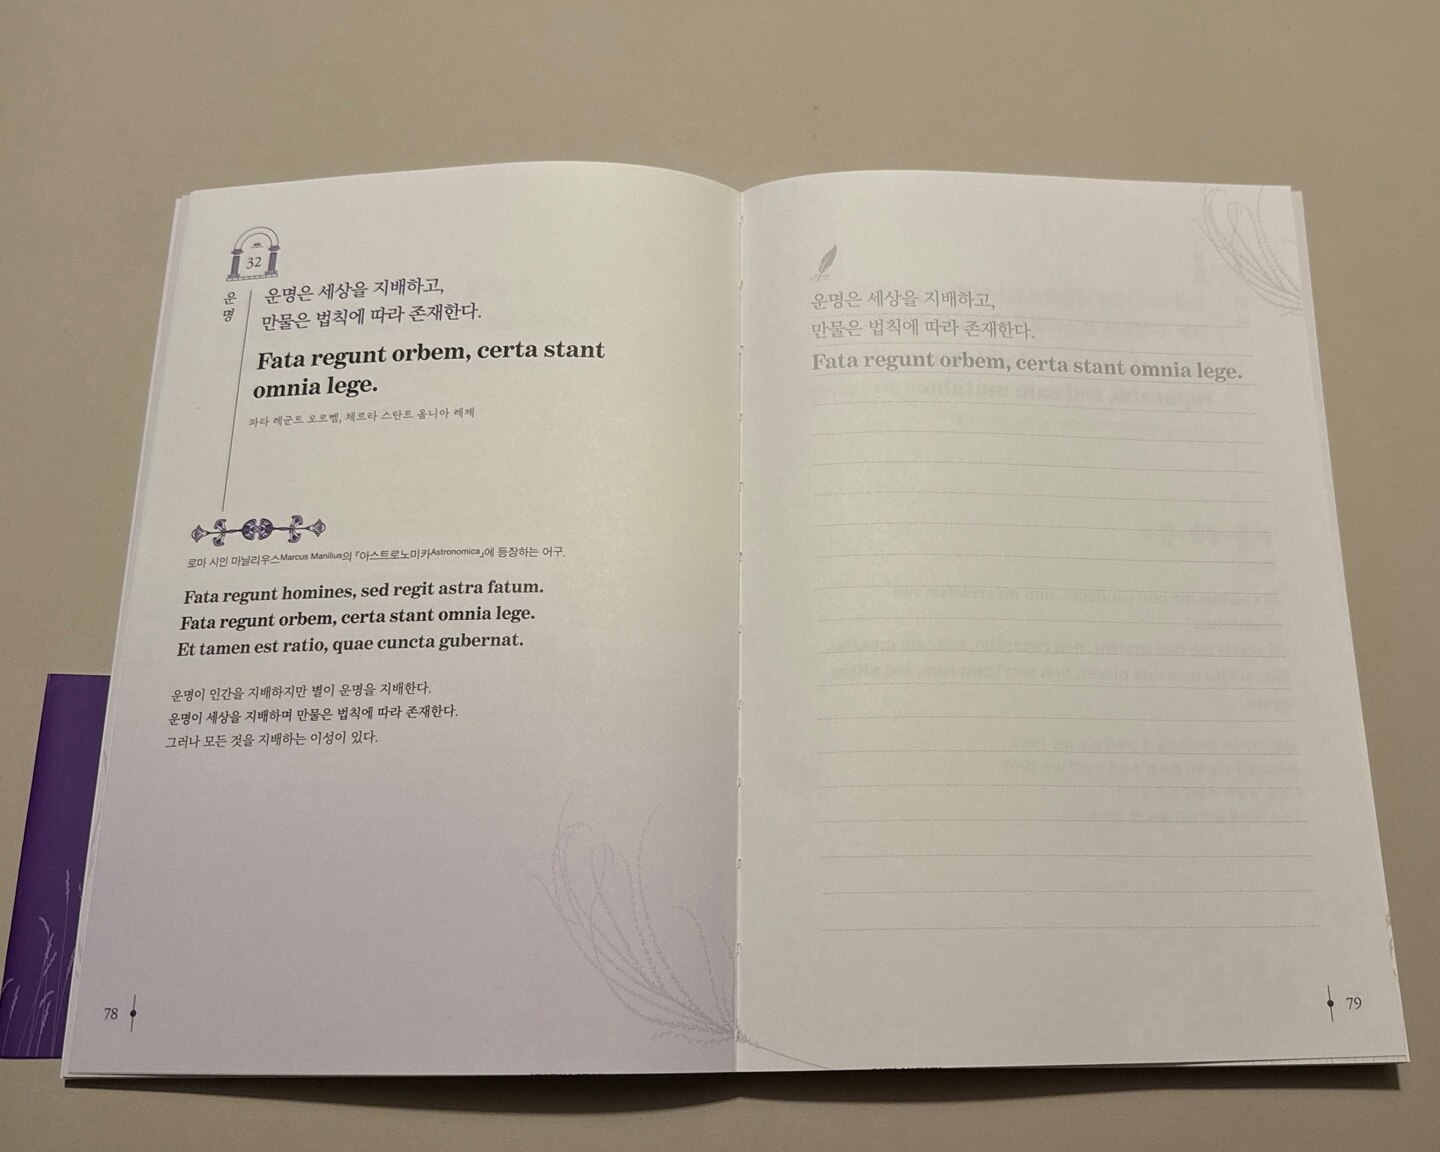 32
운명
운명은 세상을 지배하고,
만물은 법칙에 따라 존재한다.
Fata regunt orbem, certa stant
omnia lege.
파타 레군트 오르벰, 체르타 스탄트 옴니아 레제
로마 시인 마닐리우스Marcus Manilius의 『아스트로노미카Astronomica』에 등장하는 어구.
Fata regunt homines, sed regit astra fatum.
Fata regunt orbem, certa stant omnia lege.
Et tamen est ratio, quae cuncta gubernat.
운명이 인간을 지배하지만 별이 운명을 지배한다.
운명이 세상을 지배하며 만물은 법칙에 따라 존재한다.
그러나 모든 것을 지배하는 이성이 있다.
78
운명은 세상을 지배하고,
만물은 법칙에 따라 존재한다.
Fata regunt orbem, certa stant omnia lege.
79